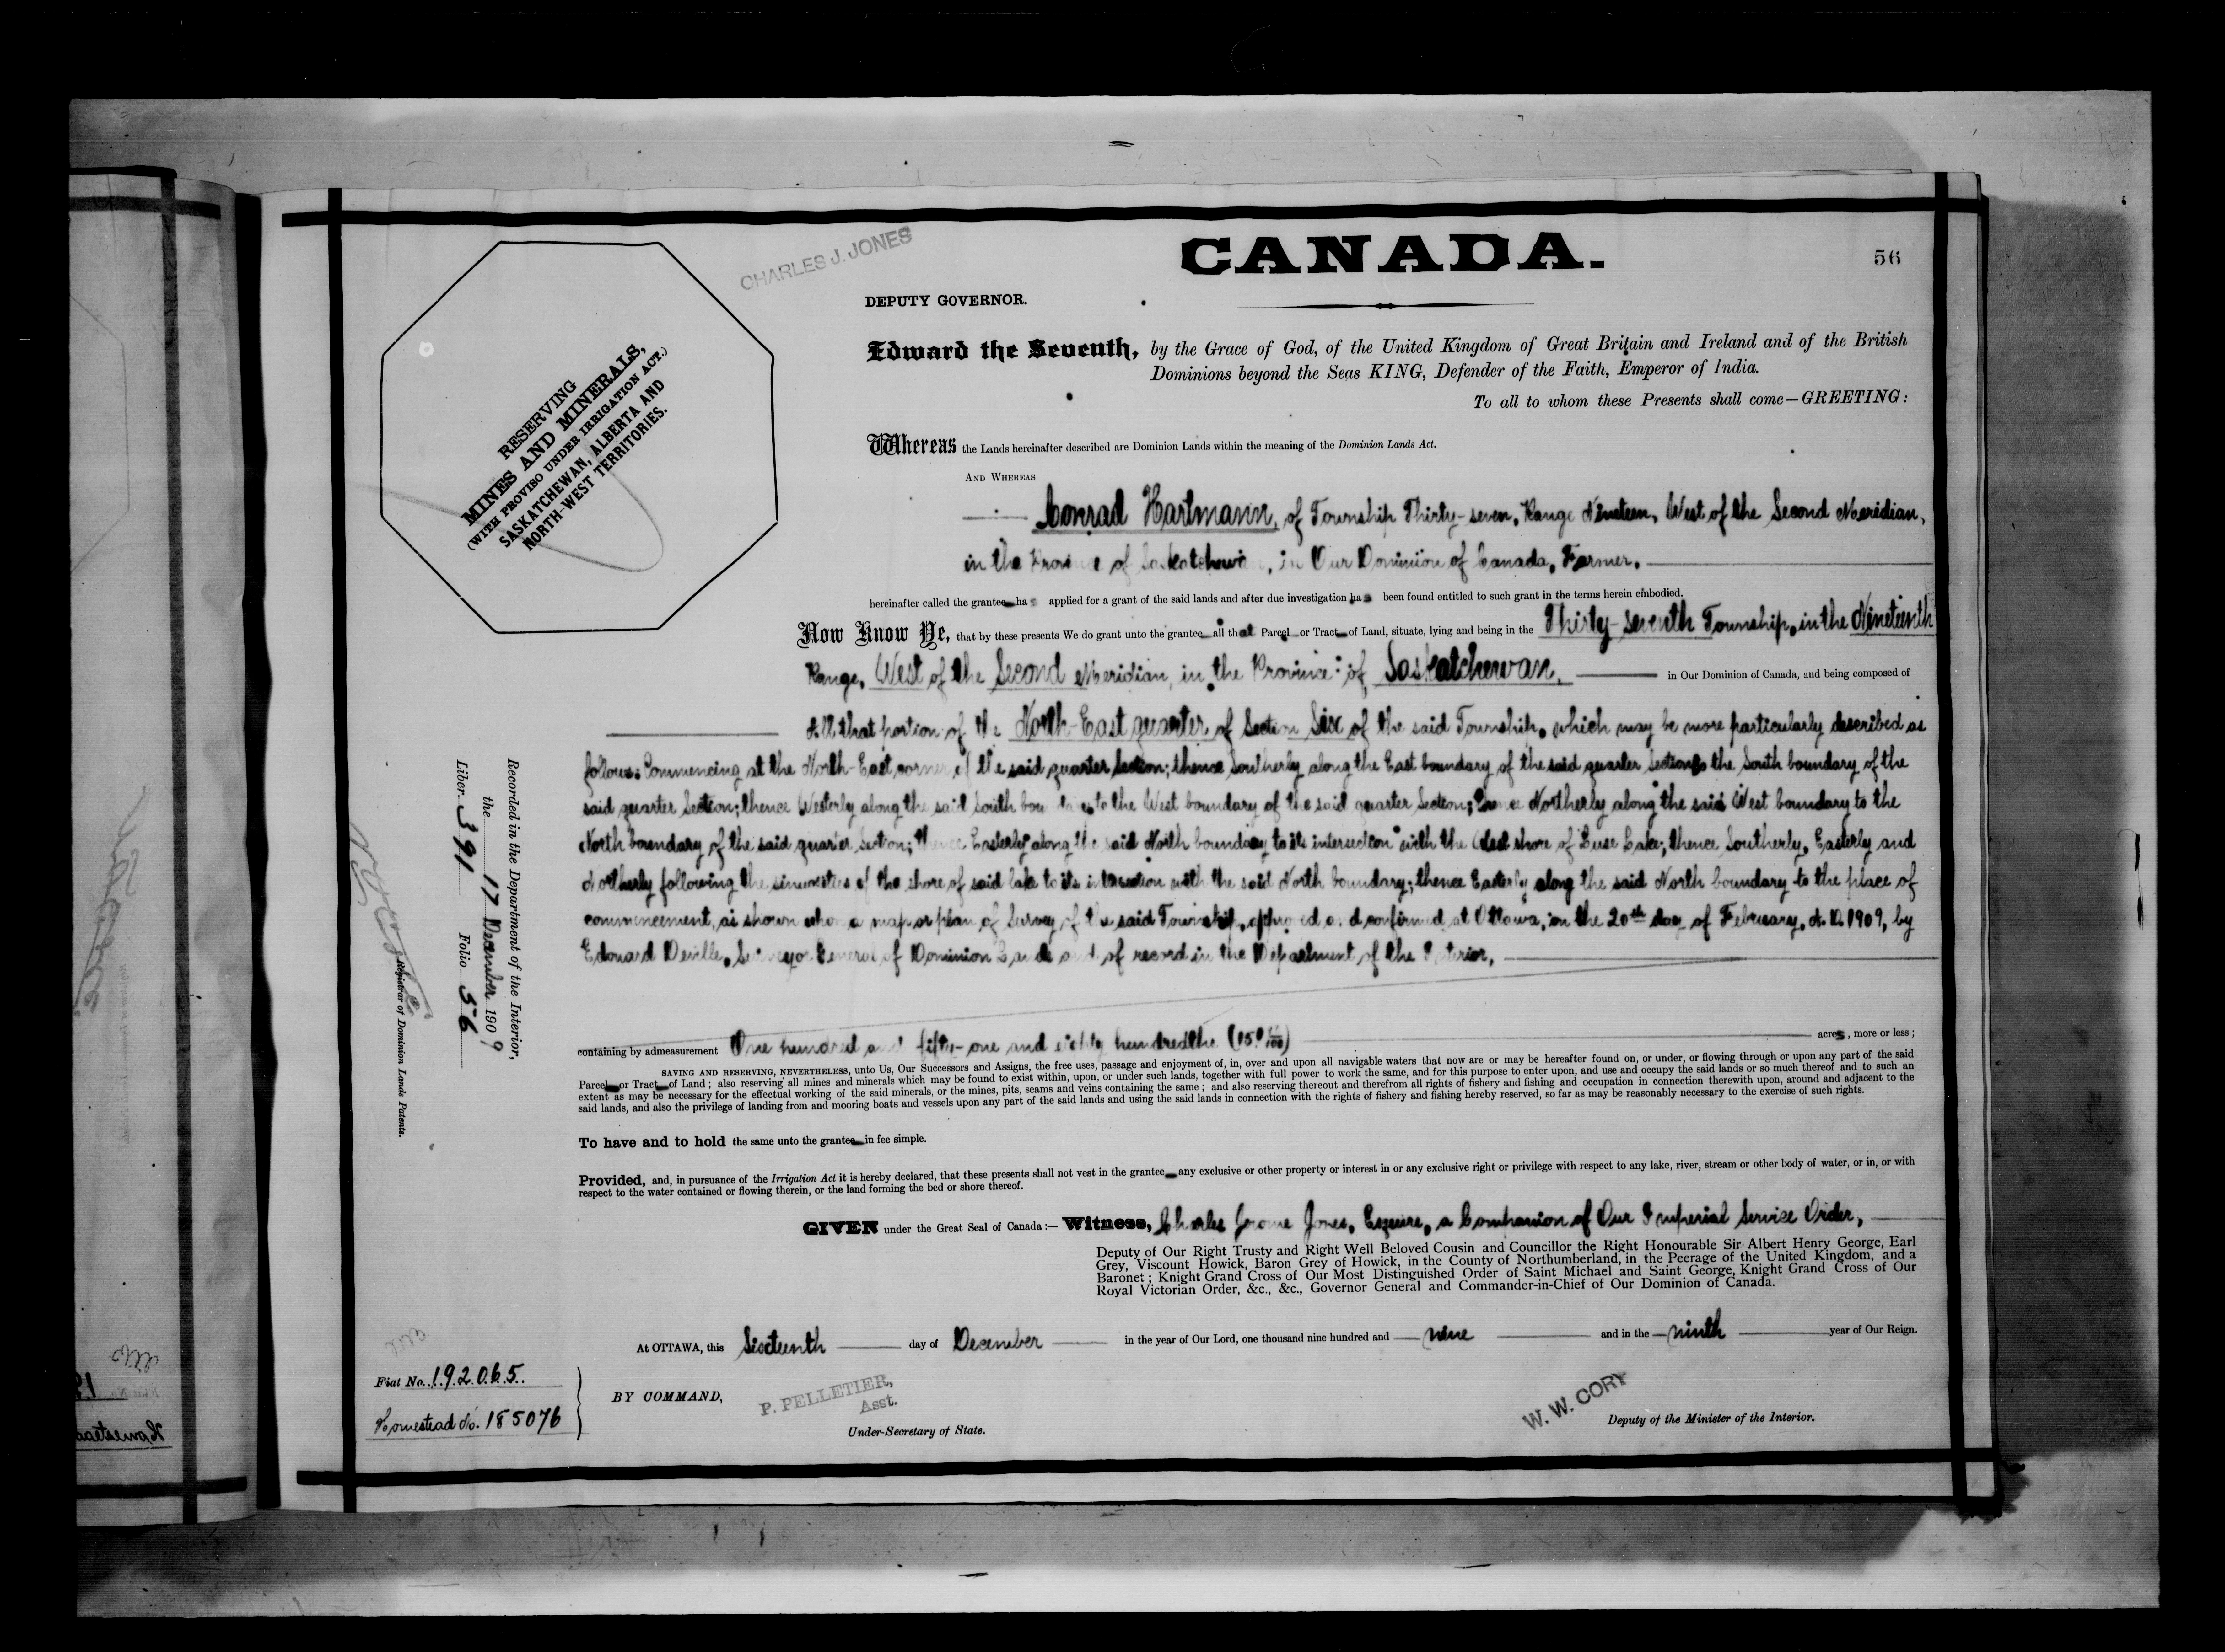 CHARLES J. JONES
CANADA.
56
DEPUTY GOVERNOR.
Edward the Seventh, by the Grace of God, of the United Kingdom of Great Britain and Ireland and of the British
Dominions beyond the Seas KING, Defender of the Faith, Emperor of India.
To all to whom these Presents shall come—GREETING:
RESERVING
MINES AND MINERALS,
(WITH PROVISO UNDER IRRIGATION ACT.)
SASKATCHEWAN, ALBERTA AND
NORTH-WEST TERRITORIES.
Whereas the Lands hereinafter described are Dominion Lands within the meaning of the Dominion Lands Act.
AND WHEREAS
Conrad Hartmann, of Township Thirty-seven, Range Nineteen, West of the Second Meridian,
in the Province of Saskatchewan, in Our Dominion of Canada, Farmer.
hereinafter called the grantee has applied for a grant of the said lands and after due investigation has been found entitled to such grant in the terms herein embodied.
Now Know Ye, that by these presents We do grant unto the grantee all that Parcel or Tract of Land, situate, lying and being in the Thirty-seventh Township, in the Nineteenth
Range, West of the Second Meridian, in the Province of Saskatchewan, in Our Dominion of Canada, and being composed of
All that portion of the North-East quarter of Section Six of the said Township, which may be more particularly described as
follows: Commencing at the North-East corner of the said quarter Section; thence Southerly along the East boundary of the said quarter Section to the South boundary of the
said quarter Section; thence Westerly along the said South boundary to the West boundary of the said quarter Section; thence Northerly along the said West boundary to the
North boundary of the said quarter Section; thence Easterly along the said North boundary to its intersection with the West shore of Lake; thence Southerly, Easterly and
Northerly following the sinuosities of the shore of said lake to its intersection with the said North boundary; thence Easterly along the said North boundary to the place of
commencement, as shown upon a map or plan of Survey of the said Township, approved and confirmed at Ottawa, on the 20th day of February, A.D. 1909, by
Edouard Deville, Surveyor General of Dominion Lands and of record in the Department of the Interior,
containing by admeasurement One hundred and fifty-one and eighty hundredths (151 80/100) acres, more or less;
SAVING AND RESERVING, NEVERTHELESS, unto Us, Our Successors and Assigns, the free uses, passage and enjoyment of, in, over and upon all navigable waters that now are or may be hereafter found on, or under, or flowing through or upon any part of the said
Parcel or Tract of Land; also reserving all mines and minerals which may be found to exist within, upon, or under such lands, together with full power to work the same, and for this purpose to enter upon, and use and occupy the said lands or so much thereof and to such an
extent as may be necessary for the effectual working of the said minerals, or the mines, pits, seams and veins containing the same; and also reserving thereout and therefrom all rights of fishery and fishing and occupation in connection therewith upon, around and adjacent to the
said lands, and also the privilege of landing from and mooring boats and vessels upon any part of the said lands and using the said lands in connection with the rights of fishery and fishing hereby reserved, so far as may be reasonably necessary to the exercise of such rights.
To have and to hold the same unto the grantee in fee simple.
Provided, and, in pursuance of the Irrigation Act it is hereby declared, that these presents shall not vest in the grantee any exclusive or other property or interest in or any exclusive right or privilege with respect to any lake, river, stream or other body of water, or in, or with
respect to the water contained or flowing therein, or the land forming the bed or shore thereof.
GIVEN under the Great Seal of Canada:— Witness, Charles Jerome Jones, Esquire, a Companion of Our Imperial Service Order,
Deputy of Our Right Trusty and Right Well Beloved Cousin and Councillor the Right Honourable Sir Albert Henry George, Earl
Grey, Viscount Howick, Baron Grey of Howick, in the County of Northumberland, in the Peerage of the United Kingdom, and a
Baronet; Knight Grand Cross of Our Most Distinguished Order of Saint Michael and Saint George, Knight Grand Cross of Our
Royal Victorian Order, &c., &c., Governor General and Commander-in-Chief of Our Dominion of Canada.
At OTTAWA, this Sixteenth day of December in the year of Our Lord, one thousand nine hundred and nine and in the ninth year of Our Reign.
BY COMMAND,
P. PELLETIER,
Asst.
Under-Secretary of State.
W. W. CORY
Deputy of the Minister of the Interior.
Fiat No. 192065.
Homestead No. 185076
Recorded in the Department of the Interior,
the 17 December 1909
Liber 391 Folio 56
Registrar of Dominion Lands Patents.